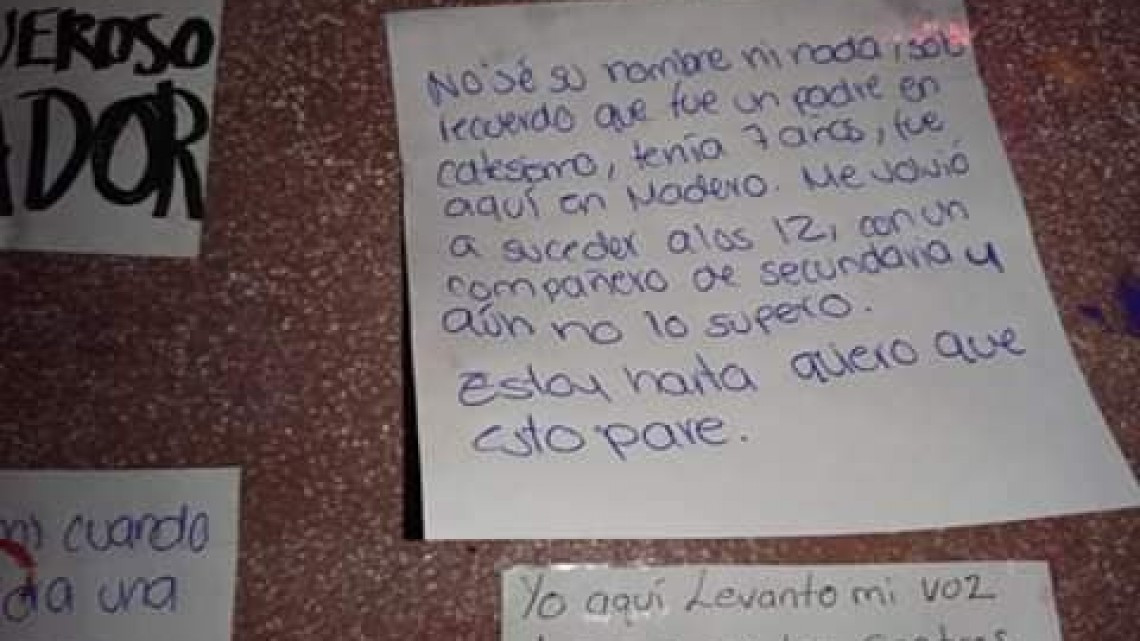 UEROSO
ADOR
No sé su nombre ni nada, solo
recuerdo que fue un padre en
catesismo, tenía 7 años, fue
aquí en Madero. Me volvió
a suceder a los 12, con un
compañero de secundaria y
aún no lo supero.
Estoy harta quiero que
esto pare.
cuando
una
Yo aquí Levanto mi voz